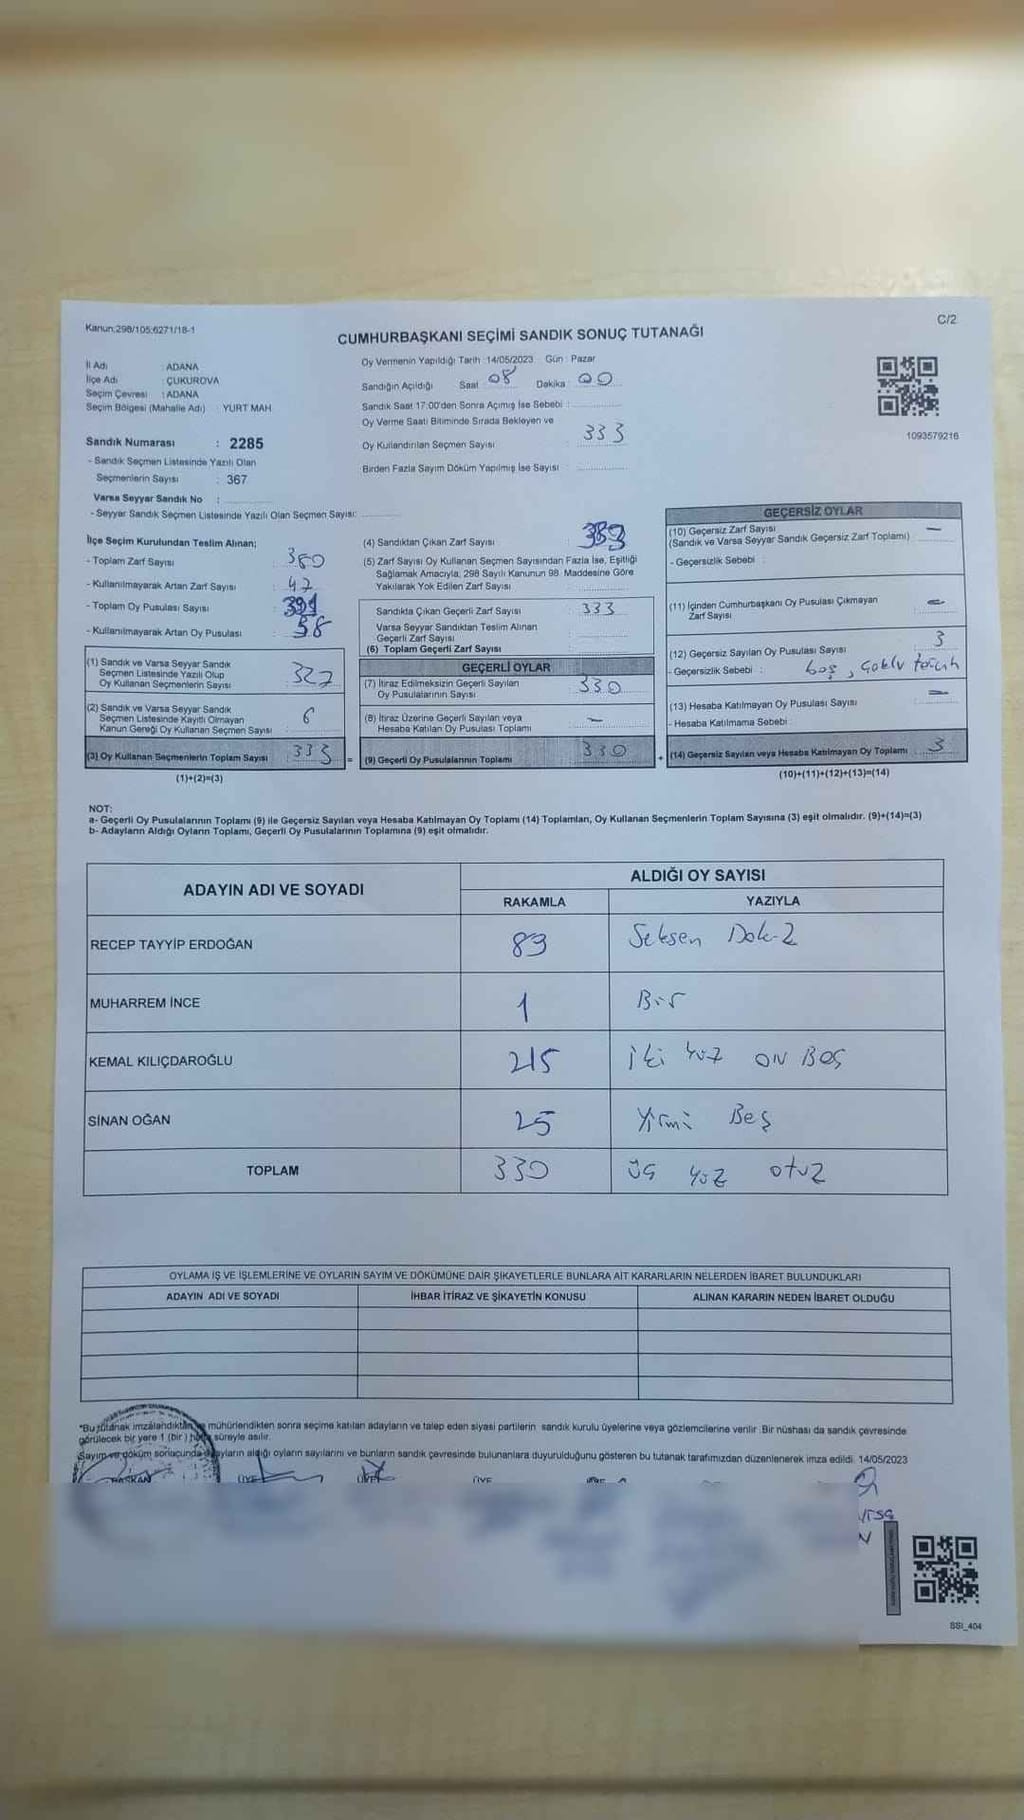 Kanun:298/105:6271/18-1
C/2
CUMHURBAŞKANI SEÇİMİ SANDIK SONUÇ TUTANAĞI
İl Adı : ADANA
İlçe Adı : ÇUKUROVA
Seçim Çevresi : ADANA
Seçim Bölgesi (Mahalle Adı) : YURT MAH
Sandık Numarası : 2285
- Sandık Seçmen Listesinde Yazılı Olan
Seçmenlerin Sayısı : 367
Varsa Seyyar Sandık No :
- Seyyar Sandık Seçmen Listesinde Yazılı Olan Seçmen Sayısı:
Oy Vermenin Yapıldığı Tarih :14/05/2023 Gün : Pazar
Sandığın Açıldığı Saat 08 Dakika : 00
Sandık Saat 17:00'den Sonra Açımış İse Sebebi :
Oy Verme Saati Bitiminde Sırada Bekleyen ve
Oy Kullandırılan Seçmen Sayısı : 333
Birden Fazla Sayım Döküm Yapılmış İse Sayısı :
1093579216
İlçe Seçim Kurulundan Teslim Alınan;
- Toplam Zarf Sayısı : 380
- Kullanılmayarak Artan Zarf Sayısı : 47
- Toplam Oy Pusulası Sayısı : 391
- Kullanılmayarak Artan Oy Pusulası : 58
(1) Sandık ve Varsa Seyyar Sandık
Seçmen Listesinde Yazılı Olup
Oy Kullanan Seçmenlerin Sayısı 327
(2) Sandık ve Varsa Seyyar Sandık
Seçmen Listesinde Kayıtlı Olmayan
Kanun Gereği Oy Kullanan Seçmen Sayısı 6
(3) Oy Kullanan Seçmenlerin Toplam Sayısı 333
(1)+(2)=(3)
(4) Sandıktan Çıkan Zarf Sayısı : 333
(5) Zarf Sayısı Oy Kullanan Seçmen Sayısından Fazla İse, Eşitliği
Sağlamak Amacıyla, 298 Sayılı Kanunun 98. Maddesine Göre
Yakılarak Yok Edilen Zarf Sayısı
Sandıkta Çıkan Geçerli Zarf Sayısı : 333
Varsa Seyyar Sandıktan Teslim Alınan
Geçerli Zarf Sayısı
(6) Toplam Geçerli Zarf Sayısı
GEÇERLİ OYLAR
(7) İtiraz Edilmeksizin Geçerli Sayılan
Oy Pusulalarının Sayısı 330
(8) İtiraz Üzerine Geçerli Sayılan veya
Hesaba Katılan Oy Pusulası Toplamı —
= (9) Geçerli Oy Pusulalarının Toplamı 330
GEÇERSİZ OYLAR
(10) Geçersiz Zarf Sayısı
(Sandık ve Varsa Seyyar Sandık Geçersiz Zarf Toplamı) —
- Geçersizlik Sebebi :
(11) İçinden Cumhurbaşkanı Oy Pusulası Çıkmayan
Zarf Sayısı —
(12) Geçersiz Sayılan Oy Pusulası Sayısı : 3
- Geçersizlik Sebebi : boş, çoklu tercih
(13) Hesaba Katılmayan Oy Pusulası Sayısı : —
- Hesaba Katılmama Sebebi :
+ (14) Geçersiz Sayılan veya Hesaba Katılmayan Oy Toplamı 3
(10)+(11)+(12)+(13)=(14)
NOT:
a- Geçerli Oy Pusulalarının Toplamı (9) ile Geçersiz Sayılan veya Hesaba Katılmayan Oy Toplamı (14) Toplamları, Oy Kullanan Seçmenlerin Toplam Sayısına (3) eşit olmalıdır. (9)+(14)=(3)
b- Adayların Aldığı Oyların Toplamı, Geçerli Oy Pusulalarının Toplamına (9) eşit olmalıdır.
ADAYIN ADI VE SOYADI ALDIĞI OY SAYISI
RAKAMLA YAZIYLA
RECEP TAYYİP ERDOĞAN 89 Seksen Dokuz
MUHARREM İNCE 1 Bir
KEMAL KILIÇDAROĞLU 215 İki Yüz ON BEŞ
SİNAN OĞAN 25 Yirmi Beş
TOPLAM 330 üç yüz otuz
OYLAMA İŞ VE İŞLEMLERİNE VE OYLARIN SAYIM VE DÖKÜMÜNE DAİR ŞİKAYETLERLE BUNLARA AİT KARARLARIN NELERDEN İBARET BULUNDUKLARI
ADAYIN ADI VE SOYADI İHBAR İTİRAZ VE ŞİKAYETİN KONUSU ALINAN KARARIN NEDEN İBARET OLDUĞU
*Bu tutanak imzalandıktan ve mühürlendikten sonra seçime katılan adayların ve talep eden siyasi partilerin sandık kurulu üyelerine veya gözlemcilerine verilir. Bir nüshası da sandık çevresinde
görülecek bir yere 1 (bir) hafta süreyle asılır.
Sayım ve döküm sonucunda adayların aldığı oyların sayılarını ve bunların sandık çevresinde bulunanlara duyurulduğunu gösteren bu tutanak tarafımızdan düzenlenerek imza edildi. 14/05/2023
BAŞKAN ÜYE ÜYE ÜYE
SSI_404